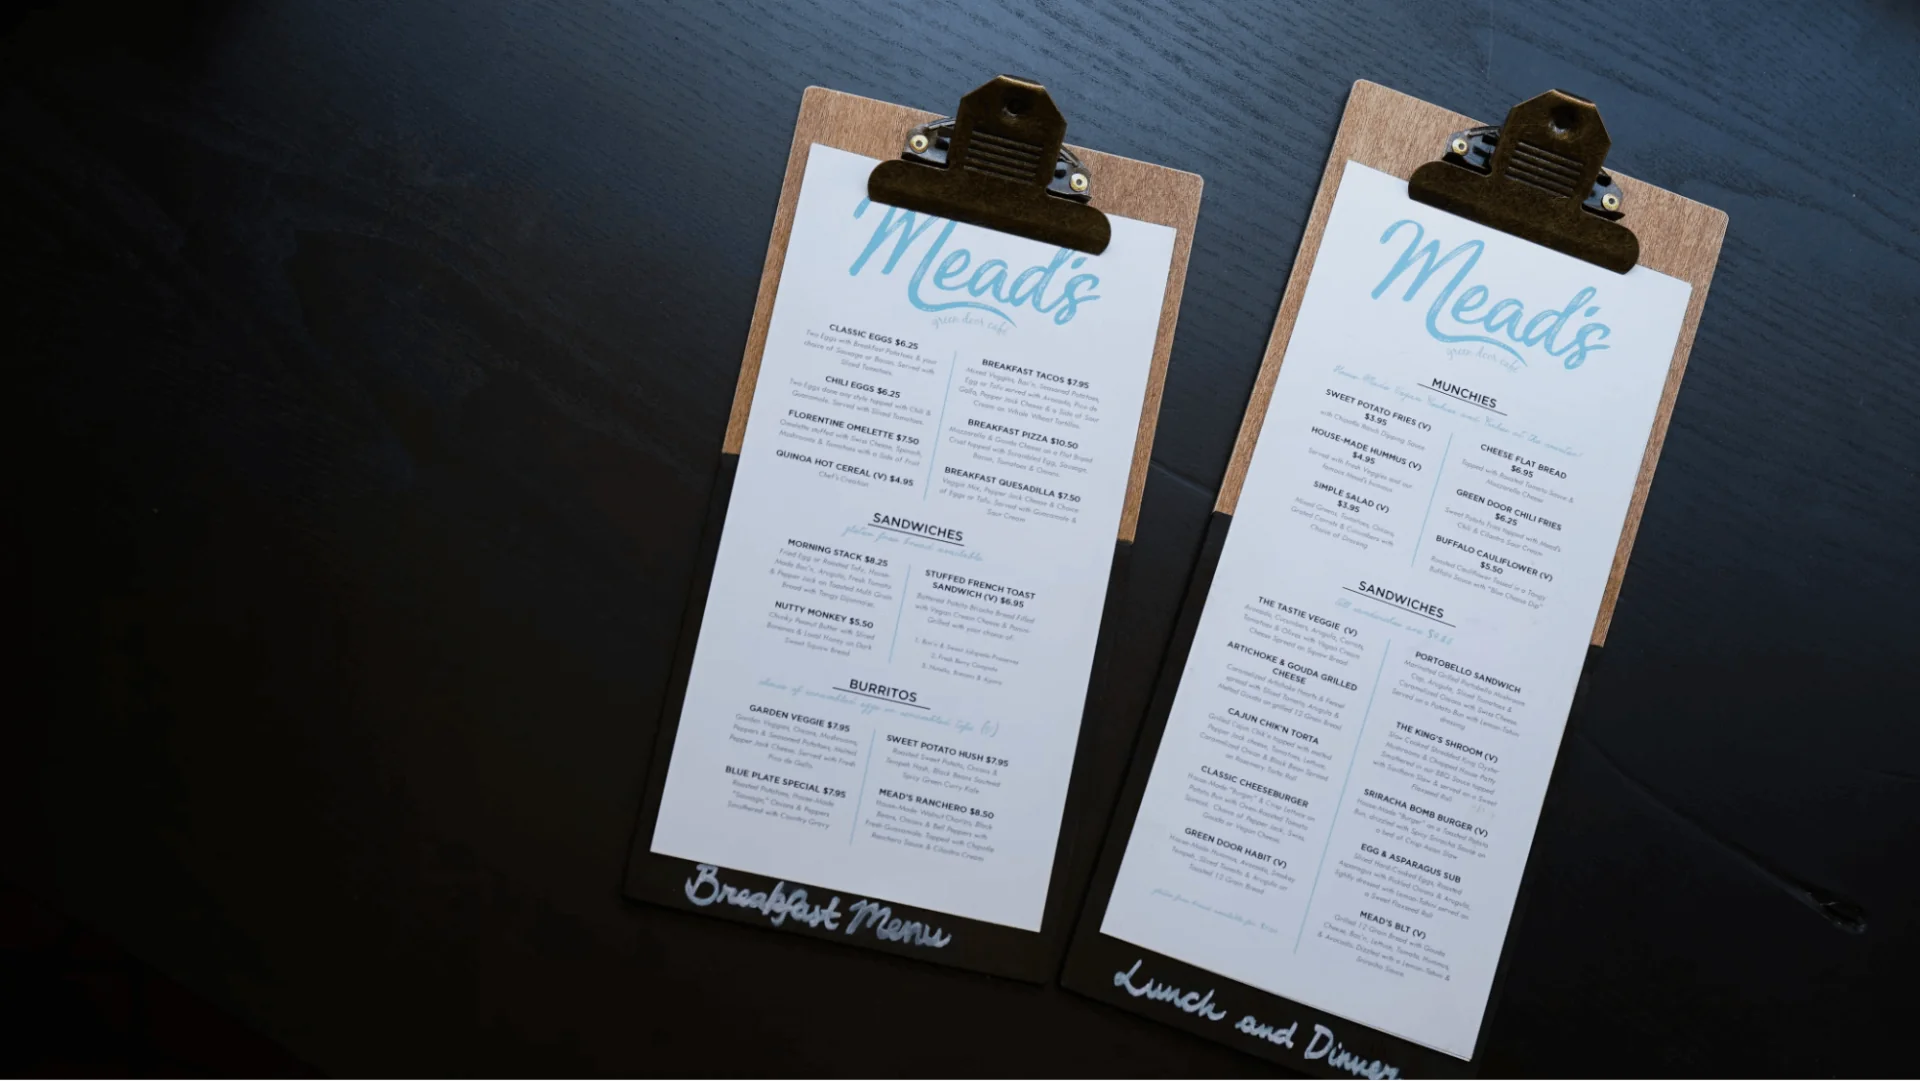 Mead's
green door café
CLASSIC EGGS $6.25
Two Eggs with Breakfast Potatoes & your
choice of Sausage or Bacon. Served with
Sliced Tomatoes.
CHILI EGGS $6.25
Two Eggs done any style topped with Chili &
Guacamole. Served with Sliced Tomatoes.
FLORENTINE OMELETTE $7.50
Omelette stuffed with Swiss Cheese, Spinach,
Mushrooms & Tomatoes with a Side of Fruit
QUINOA HOT CEREAL (V) $4.95
Chef's Creation
BREAKFAST TACOS $7.95
Mixed Veggies, Bac'n, Seasoned Potatoes,
Egg or Tofu served with Avocado, Pico de
Gallo, Pepper Jack Cheese & a Side of Sour
Cream on Whole Wheat Tortillas.
BREAKFAST PIZZA $10.50
Mozzarella & Gouda Cheese on a Flat Bread
Crust topped with Scrambled Egg, Sausage,
Bacon, Tomatoes & Onions.
BREAKFAST QUESADILLA $7.50
Veggie Mix, Pepper Jack Cheese & Choice
of Eggs or Tofu. Served with Guacamole &
Sour Cream
SANDWICHES
gluten free bread available
MORNING STACK $8.25
Fried Egg or Roasted Tofu, House-
Made Bac'n, Arugula, Fresh Tomato
& Pepper Jack on Toasted Multi Grain
Bread with Tangy Dijonnaise.
NUTTY MONKEY $5.50
Chunky Peanut Butter with Sliced
Bananas & Local Honey on Dark
Sweet Squaw Bread
STUFFED FRENCH TOAST
SANDWICH (V) $6.95
Battered Potato Brioche Bread Filled
with Vegan Cream Cheese &
Grilled with your choice of:
1. Bac'n & Sweet Jalapeño Preserves
2. Fresh Berry Compote
3. Nutella, Banana &
BURRITOS
choice of scrambled eggs or scrambled tofu (v)
GARDEN VEGGIE $7.95
Garden Veggies, Onions, Mushrooms,
Peppers & Seasoned Potatoes, Melted
Pepper Jack Cheese. Served with Fresh
Pico de Gallo.
BLUE PLATE SPECIAL $7.95
Roasted Potatoes, House-Made
"Sausage," Onions & Peppers
Smothered with Country Gravy
SWEET POTATO HUSH $7.95
Roasted Sweet Potato, Onions &
Tempeh Hash, Black Beans Sauteed
Spicy Green Curry Kale
MEAD'S RANCHERO $8.50
House-Made Walnut Chorizo, Black
Beans, Onions & Bell Peppers with
Fresh Guacamole. Topped with Chipotle
Ranchero Sauce & Cilantro Cream
Breakfast Menu
Mead's
green door café
MUNCHIES
SWEET POTATO FRIES (V)
$3.95
with Chipotle Ranch Dipping Sauce
HOUSE-MADE HUMMUS (V)
$4.95
Served with Fresh Veggies and our
famous Mead's hummus
SIMPLE SALAD (V)
$3.95
Mixed Greens, Tomatoes, Onions,
Grated Carrots & Cucumbers with
Choice of Dressing
CHEESE FLAT BREAD
$6.95
Topped with Roasted Tomato Sauce &
Mozzarella Cheese
GREEN DOOR CHILI FRIES
$6.25
Sweet Potato Fries topped with Mead's
Chili & Cilantro Sour Cream
BUFFALO CAULIFLOWER (V)
$5.50
Roasted Cauliflower Tossed in a Tangy
Buffalo Sauce with "Blue Cheese Dip"
SANDWICHES
All sandwiches are
THE TASTIE VEGGIE (V)
Avocado, Cucumbers, Arugula, Carrots,
Tomatoes & Olives with Vegan Cream
Cheese Spread on Squaw Bread
ARTICHOKE & GOUDA GRILLED
CHEESE
Caramelized Artichoke Hearts & Fennel
spread with Sliced Tomato, Arugula &
Melted Gouda on grilled 12 Grain Bread
CAJUN CHIK'N TORTA
Grilled Cajun Chik'n topped with melted
Pepper Jack cheese, Tomatoes, Lettuce,
Caramelized Onion & Black Bean Spread
on Rosemary Torta Roll
CLASSIC CHEESEBURGER
House-Made "Burger," & Crisp Lettuce on
Potato Bun with Oven Roasted Tomato
Spread. Choice of Pepper Jack, Swiss,
Gouda or Vegan Cheese.
GREEN DOOR HABIT (V)
House-Made Hummus, Avocado, Smokey
Tempeh, Sliced Tomato & Arugula on
Toasted 12 Grain Bread
gluten free bread available for
PORTOBELLO SANDWICH
Marinated Grilled Portobello Mushroom
Cap, Arugula, Sliced Tomatoes &
Caramelized Onions with Swiss Cheese.
Served on a Potato Bun with Lemon-Tahini
dressing
THE KING'S SHROOM (V)
Slow Cooked Shredded King Oyster
Mushrooms & Chopped House Patty
Smothered in our BBQ Sauce topped
with Southern Slaw & served on a Sweet
Flaxseed Roll
SRIRACHA BOMB BURGER (V)
House-Made "Burger" on a Toasted Potato
Bun, drizzled with Spicy Sriracha Sauce on
a bed of Crisp Asian Slaw
EGG & ASPARAGUS SUB
Sliced Hard-Cooked Eggs, Roasted
Asparagus with Pickled Onions & Arugula,
lightly dressed with Lemon-Tahini served on
a Sweet Flaxseed Roll
MEAD'S BLT (V)
Grilled 12 Grain Bread with Gouda
Cheese, Bac'n, Lettuce, Tomato, Hummus,
& Avocado. Drizzled with a Lemon-Tahini &
Sriracha Sauce
Lunch and Dinner